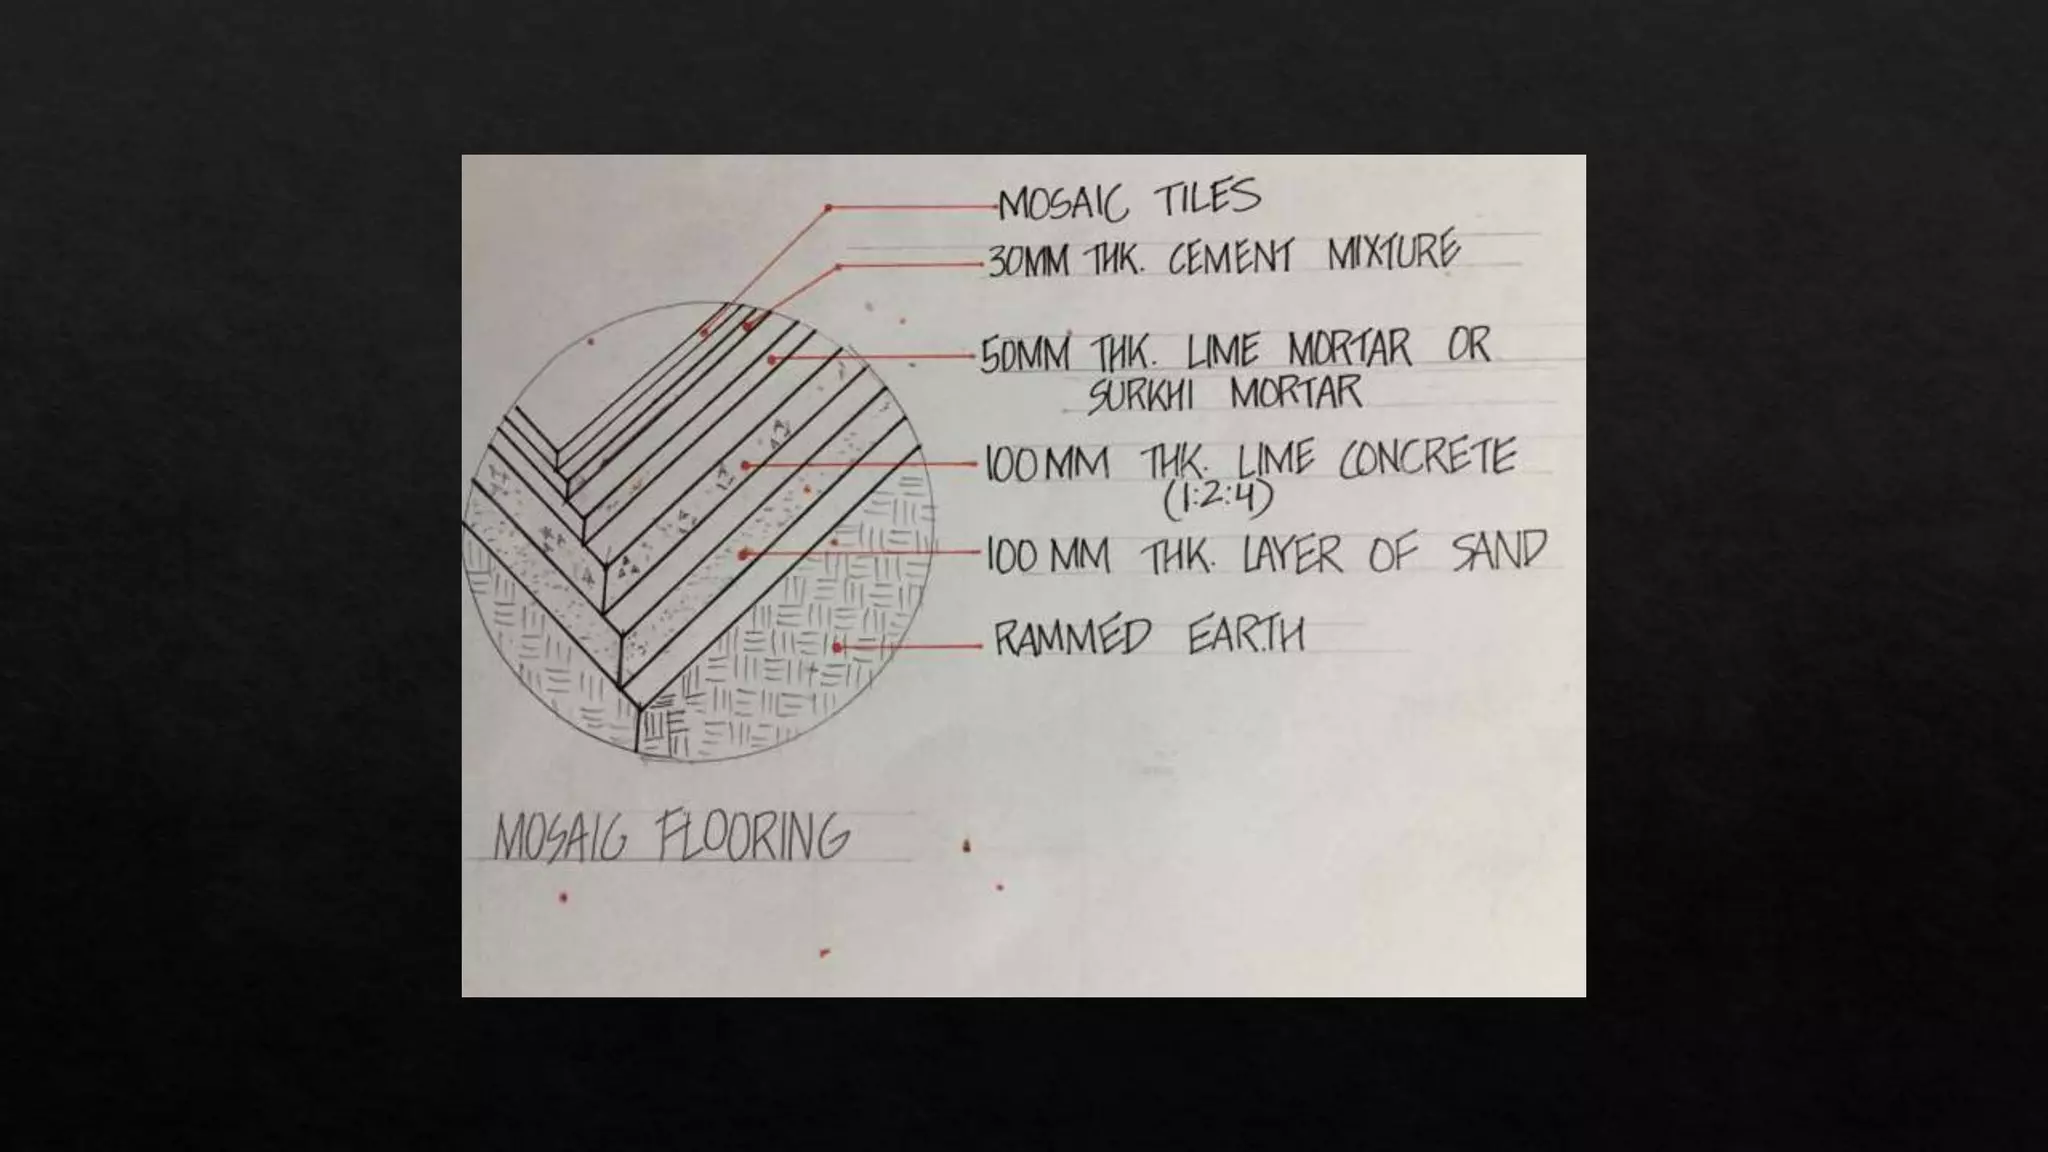 MOSAIC TILES
30MM THK. CEMENT MIXTURE
50MM THK. LIME MORTAR OR
SURKHI MORTAR
100MM THK. LIME CONCRETE
(1:2:4)
100 MM THK. LAYER OF SAND
RAMMED EARTH
MOSAIC FLOORING